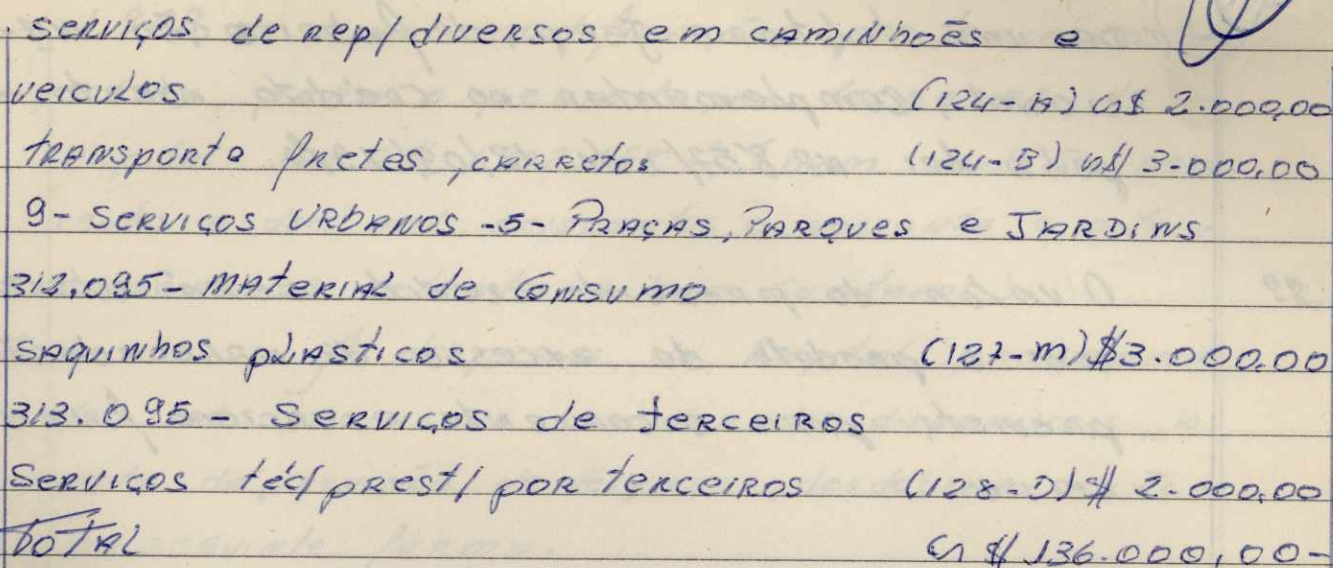 serviços de rep/diversos em caminhões e
veiculos (124-A) Cr$ 2.000,00
transporte fretes, carretos (124-B) Cr$ 3.000,00
9- Serviços Urbanos -5- Praças, Parques e Jardins
312.095- Material de Consumo
saquinhos plasticos (127-M) $3.000,00
313.095 - Serviços de terceiros
Serviços téc/prest/ por terceiros (128-D) $ 2.000,00
Total Cr $ 136.000,00-